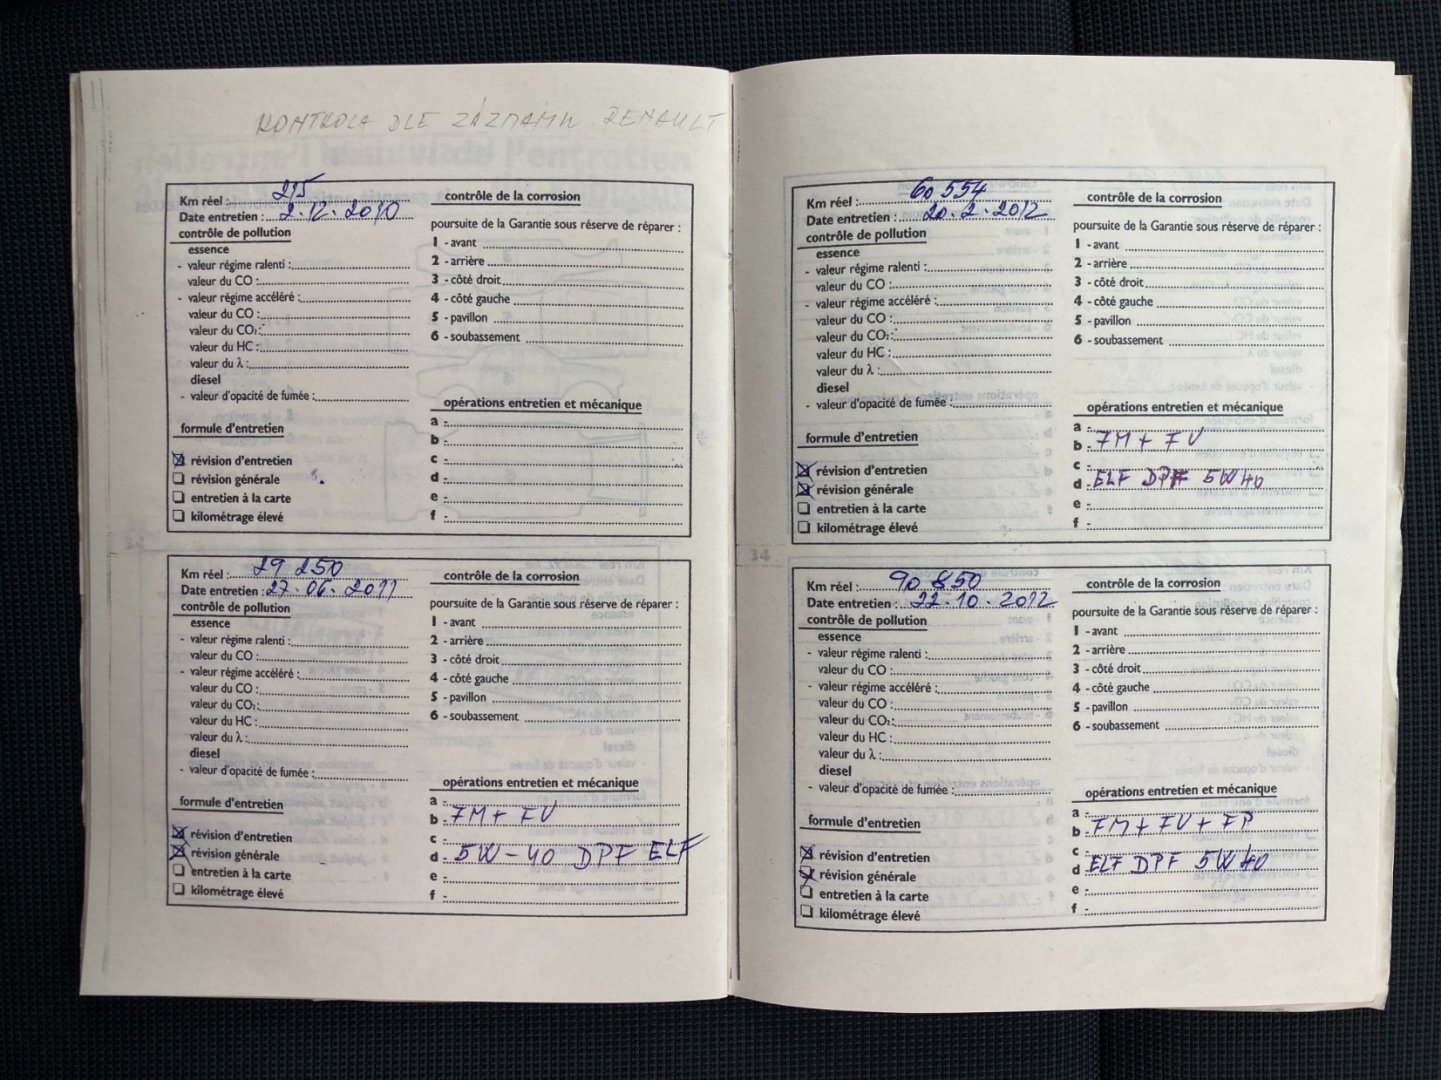 KONTROLA DLE ZÁZNAMU RENAULT
Km réel : 215
Date entretien : 2.12.2010
contrôle de pollution
essence
- valeur régime ralenti :
valeur du CO :
- valeur régime accéléré :
valeur du CO :
valeur du CO₂ :
valeur du HC :
valeur du λ :
diesel
- valeur d'opacité de fumée :
formule d'entretien
révision d'entretien
révision générale
entretien à la carte
kilométrage élevé
contrôle de la corrosion
poursuite de la Garantie sous réserve de réparer :
1 - avant
2 - arrière
3 - côté droit
4 - côté gauche
5 - pavillon
6 - soubassement
opérations entretien et mécanique
a -
b -
c -
d -
e -
f -
Km réel : 29 250
Date entretien : 27.06.2011
contrôle de pollution
essence
- valeur régime ralenti :
valeur du CO :
- valeur régime accéléré :
valeur du CO :
valeur du CO₂ :
valeur du HC :
valeur du λ :
diesel
- valeur d'opacité de fumée :
formule d'entretien
révision d'entretien
révision générale
entretien à la carte
kilométrage élevé
contrôle de la corrosion
poursuite de la Garantie sous réserve de réparer :
1 - avant
2 - arrière
3 - côté droit
4 - côté gauche
5 - pavillon
6 - soubassement
opérations entretien et mécanique
a -
b - FM + FV
c -
d - 5W-40 DPF ELF
e -
f -
Km réel : 60 554
Date entretien : 20.2.2012
contrôle de pollution
essence
- valeur régime ralenti :
valeur du CO :
- valeur régime accéléré :
valeur du CO :
valeur du CO₂ :
valeur du HC :
valeur du λ :
diesel
- valeur d'opacité de fumée :
formule d'entretien
révision d'entretien
révision générale
entretien à la carte
kilométrage élevé
contrôle de la corrosion
poursuite de la Garantie sous réserve de réparer :
1 - avant
2 - arrière
3 - côté droit
4 - côté gauche
5 - pavillon
6 - soubassement
opérations entretien et mécanique
a -
b - FM + FV
c -
d - ELF DPF 5W40
e -
f -
34
Km réel : 90 850
Date entretien : 22.10.2012
contrôle de pollution
essence
- valeur régime ralenti :
valeur du CO :
- valeur régime accéléré :
valeur du CO :
valeur du CO₂ :
valeur du HC :
valeur du λ :
diesel
- valeur d'opacité de fumée :
formule d'entretien
révision d'entretien
révision générale
entretien à la carte
kilométrage élevé
contrôle de la corrosion
poursuite de la Garantie sous réserve de réparer :
1 - avant
2 - arrière
3 - côté droit
4 - côté gauche
5 - pavillon
6 - soubassement
opérations entretien et mécanique
a -
b - FM + FV + FP
c -
d - ELF DPF 5W40
e -
f -